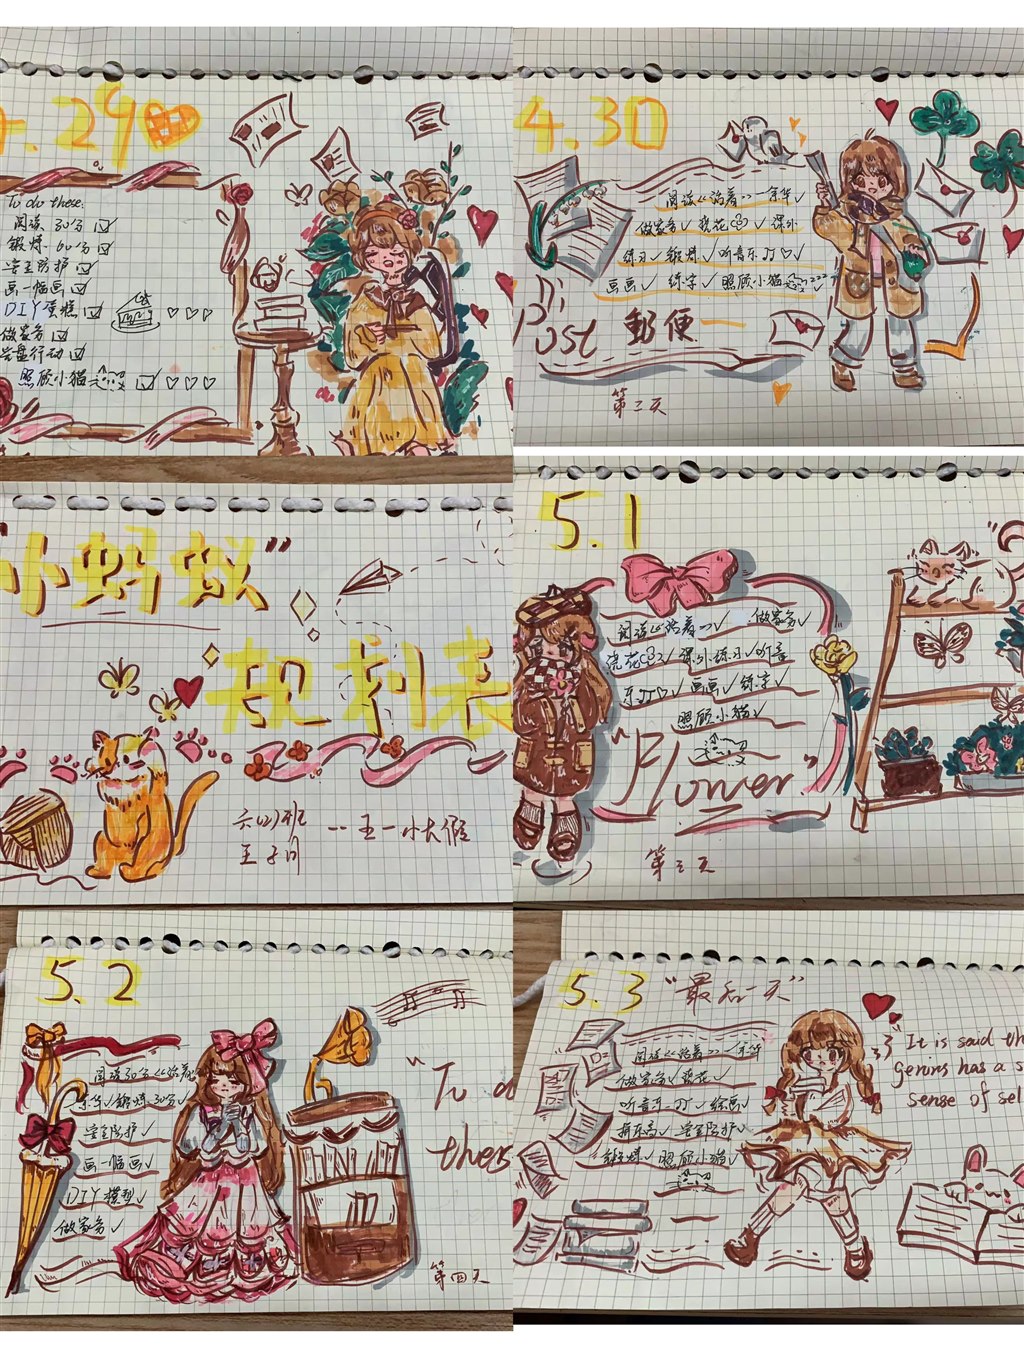 4.29
To do these.
阅读 30分
锻炼 60分
安全防护
画一幅画
DIY蛋糕
做家务
光盘行动
照顾小猫
4.30
阅读《活着》—余华
做家务 浇花 课外
练习 锻炼 听音乐
画画 练字 照顾小猫 zzz
Post 郵便
第二天
"小蚂蚁"
规划表
六(2)班
王子月
--五一小长假
5.1
阅读《活着》 做家务
浇花 课外练习 听音
乐 画画 练字
照顾小猫
"Flower"
第三天
5.2
阅读30分《活着》
余华 锻炼30分
安全防护
画一幅画
DIY模型
做家务
"To d
thes
第四天
5.3 "最后一天"
阅读《活着》—余华
做家务 浇花
听音乐 绘画
拼乐高 安全防护
锻炼 照顾小猫
It is said th
genius has a s
sense of sel